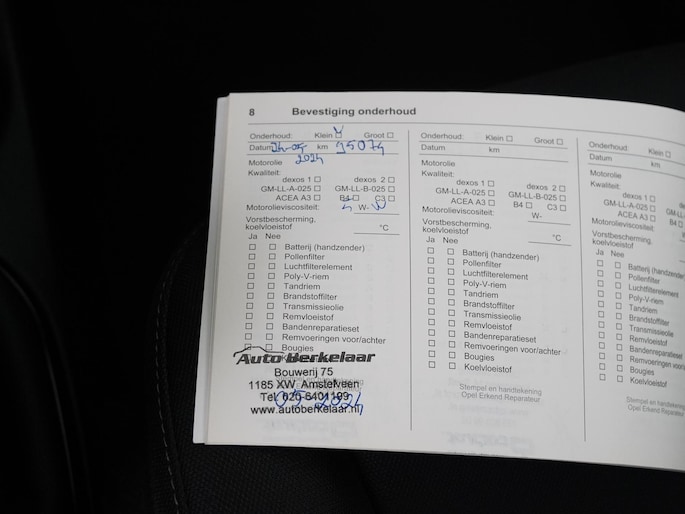 8 Bevestiging onderhoud
Onderhoud: Klein Groot
Datum 24-05- km 75074
2024
Motorolie
Kwaliteit:
dexos 1 dexos 2
GM-LL-A-025 GM-LL-B-025
ACEA A3 B4 C3
Motorolieviscositeit: W-
Vorstbescherming,
koelvloeistof °C
Ja Nee
Batterij (handzender)
Pollenfilter
Luchtfilterelement
Poly-V-riem
Tandriem
Brandstoffilter
Transmissieolie
Remvloeistof
Bandenreparatieset
Remvoeringen voor/achter
Bougies
Auto Berkelaar
Bouwerij 75
1185 XW Amstelveen
Tel. 020-6401199
www.autoberkelaar.nl
05-2024
Onderhoud: Klein Groot
Datum km
Motorolie
Kwaliteit:
dexos 1 dexos 2
GM-LL-A-025 GM-LL-B-025
ACEA A3 B4 C3
Motorolieviscositeit: W-
Vorstbescherming,
koelvloeistof °C
Ja Nee
Batterij (handzender)
Pollenfilter
Luchtfilterelement
Poly-V-riem
Tandriem
Brandstoffilter
Transmissieolie
Remvloeistof
Bandenreparatieset
Remvoeringen voor/achter
Bougies
Koelvloeistof
Stempel en handtekening
Opel Erkend Reparateur
Onderhoud: Klein
Datum km
Motorolie
Kwaliteit:
dexos 1
GM-LL-A-025
ACEA A3 B4
Motorolieviscositeit:
Vorstbescherming,
koelvloeistof
Ja Nee
Batterij (handzender)
Pollenfilter
Luchtfilterelement
Poly-V-riem
Tandriem
Brandstoffilter
Transmissieolie
Remvloeistof
Bandenreparatieset
Remvoeringen
Bougies
Koelvloeistof
Stempel en handtekening
Opel Erkend Reparateur